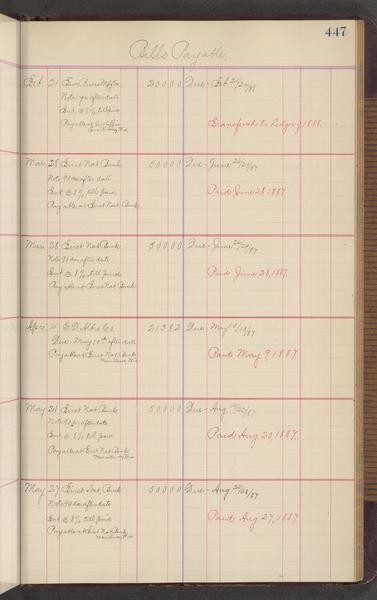 447
Bills Payable.
Oct. 21 200 00 Due - Oct 21/24/88
Note 1 yr after date
Int. @ 8% till paid
Payable at
Transferred to Ledger 1888.
Mar. 28 First Nat. Bank 500 00 Due - June 26/29/87
Note 90 da after date
Int @ 8% till paid
Payable at First Nat. Bank
Paid June 28, 1887
Mar. 28 First Nat. Bank 500 00 Due - June 26/29/87
Note 90 da. after date
Int @ 8% till paid
Payable at First Nat Bank
Paid June 28, 1887.
Apr. 4 Co. 215 82 Due - May 10/13/87
Due - May 10th after date
Payable at First Nat. Bank
Paid May 9, 1887.
May 21 First Nat. Bank 500 00 Due - Aug. 19/22/87
Note 90 da after date
Int @ 8% till paid
Payable at First Nat Bank
Paid Aug 20 1887.
May 27 First Nat. Bank 500 00 Due - Aug 25/28/87
Note 90 da after date
Int @ 8% till paid
Payable at First Nat. Bank
Paid Aug 27, 1887.